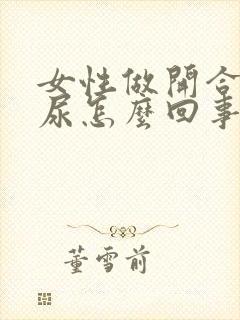 女性做開合
尿怎麼回事
董雪前